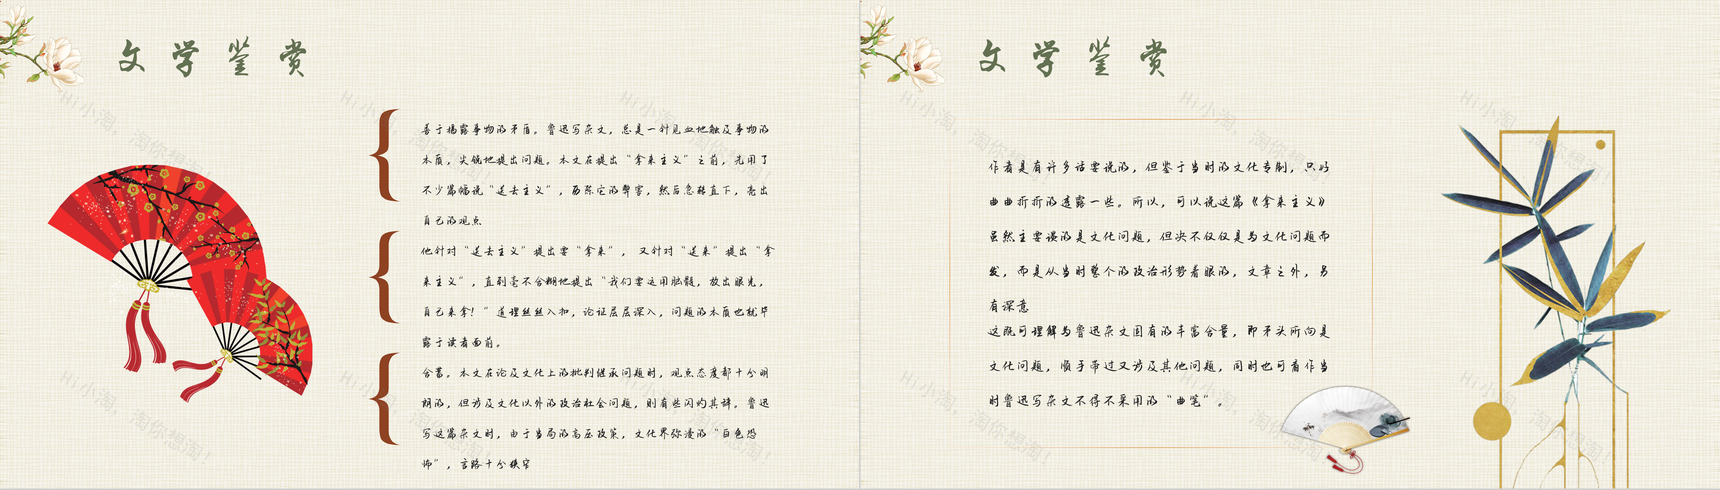 文学鉴赏
善于揭露事物的矛盾。鲁迅写杂文，总是一针见血地触及事物的
本质，尖锐地提出问题。本文在提出“拿来主义”之前，先用了
不少篇幅说“送去主义”，历陈它的弊害，然后急转直下，亮出
自己的观点
他针对“送去主义”提出要“拿来”，又针对“送来”提出“拿
来主义”，直到毫不含糊地提出“我们要运用脑髓，放出眼光，
自己来拿！”道理丝丝入扣，论证层层深入，问题的本质也就毕
露于读者面前。
含蓄。本文在论及文化上的批判继承问题时，观点态度都十分明
朗的，但涉及文化以外的政治社会问题，则有些闪灼其辞。鲁迅
写这篇杂文时，由于当局的高压政策，文化界弥漫的“白色恐
怖”，言路十分狭窄
文学鉴赏
作者是有许多话要说的，但鉴于当时的文化专制，只好
曲曲折折的透露一些。所以，可以说这篇《拿来主义》
虽然主要谈的是文化问题，但决不仅仅是为文化问题而
发，而是从当时整个的政治形势着眼的，文章之外，另
有深意
这既可理解为鲁迅杂文固有的丰富含量，即矛头所向是
文化问题，顺手带过又涉及其他问题，同时也可看作当
时鲁迅写杂文不得不采用的“曲笔”。
Hi小淘，淘你想淘！
Hi小淘，淘你想淘！
Hi小淘，淘你想淘！
Hi小淘，淘你想淘！
Hi小淘，淘你想淘！
Hi小淘，淘你想淘！
Hi小淘，淘你想淘！
Hi小淘，淘你想淘！
Hi小淘，淘你想淘！
Hi小淘，淘你想淘！
Hi小淘，淘你想淘！
Hi小淘，淘你想淘！